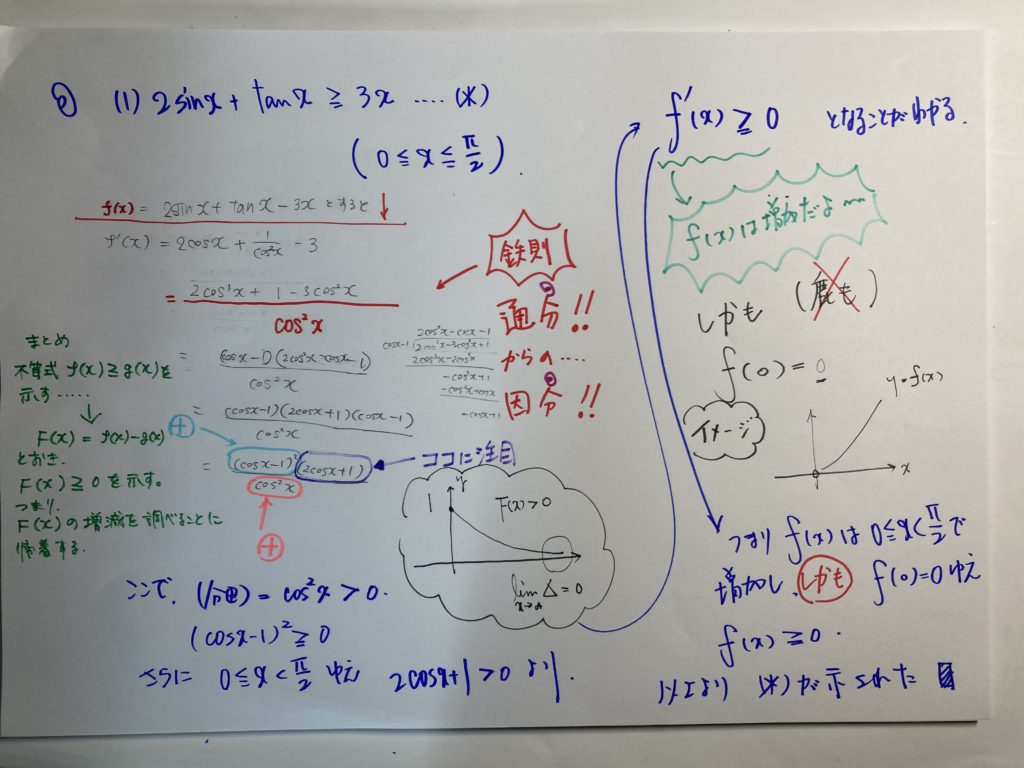 (1) 2sinx + tanx ≧ 3x ‥‥(*)
(0 ≦ x ≦ π/2).
f(x) = 2sinx + tanx - 3x とすると
f'(x) = 2cosx + 1/cos²x - 3
= (2cos³x + 1 - 3cos²x)/cos²x
= (cosx-1)(2cos²x-cosx-1)/cos²x
= (cosx-1)(2cosx+1)(cosx-1)/cos²x
= (cosx-1)²(2cosx+1)/cos²x
⊕
⊕
ココに注目
鉄則
通分!!
からの‥‥
因分!!
2cos²x-cosx-1
cosx-1 2cos³x-3cos²x+1
2cos³x-2cos²x
-cos²x+1
-cos²x+cosx
-cosx+1
まとめ
不等式 f(x)≧g(x)を
示す‥‥‥
↓
F(x) = f(x)-g(x)
とおき.
F(x)≧0 を示す。
つまり.
F(x)の増減を調べることに
帰着する.
y
1
F(x)>0
lim x→∞ △ = 0
ここで, (分母) = cos²x > 0.
(cosx-1)² ≧ 0
さらに 0≦x<π/2 ゆえ 2cosx+1 > 0 より.
f'(x) ≧ 0 となることがわかる.
f(x)は増加だよ〜
しかも (鹿も)
f(0) = 0
イメージ
y=f(x)
x
つまり f(x)は 0≦x<π/2で
増加し、しかも f(0)=0ゆえ
f(x) ≧ 0.
以上より (*)が示された